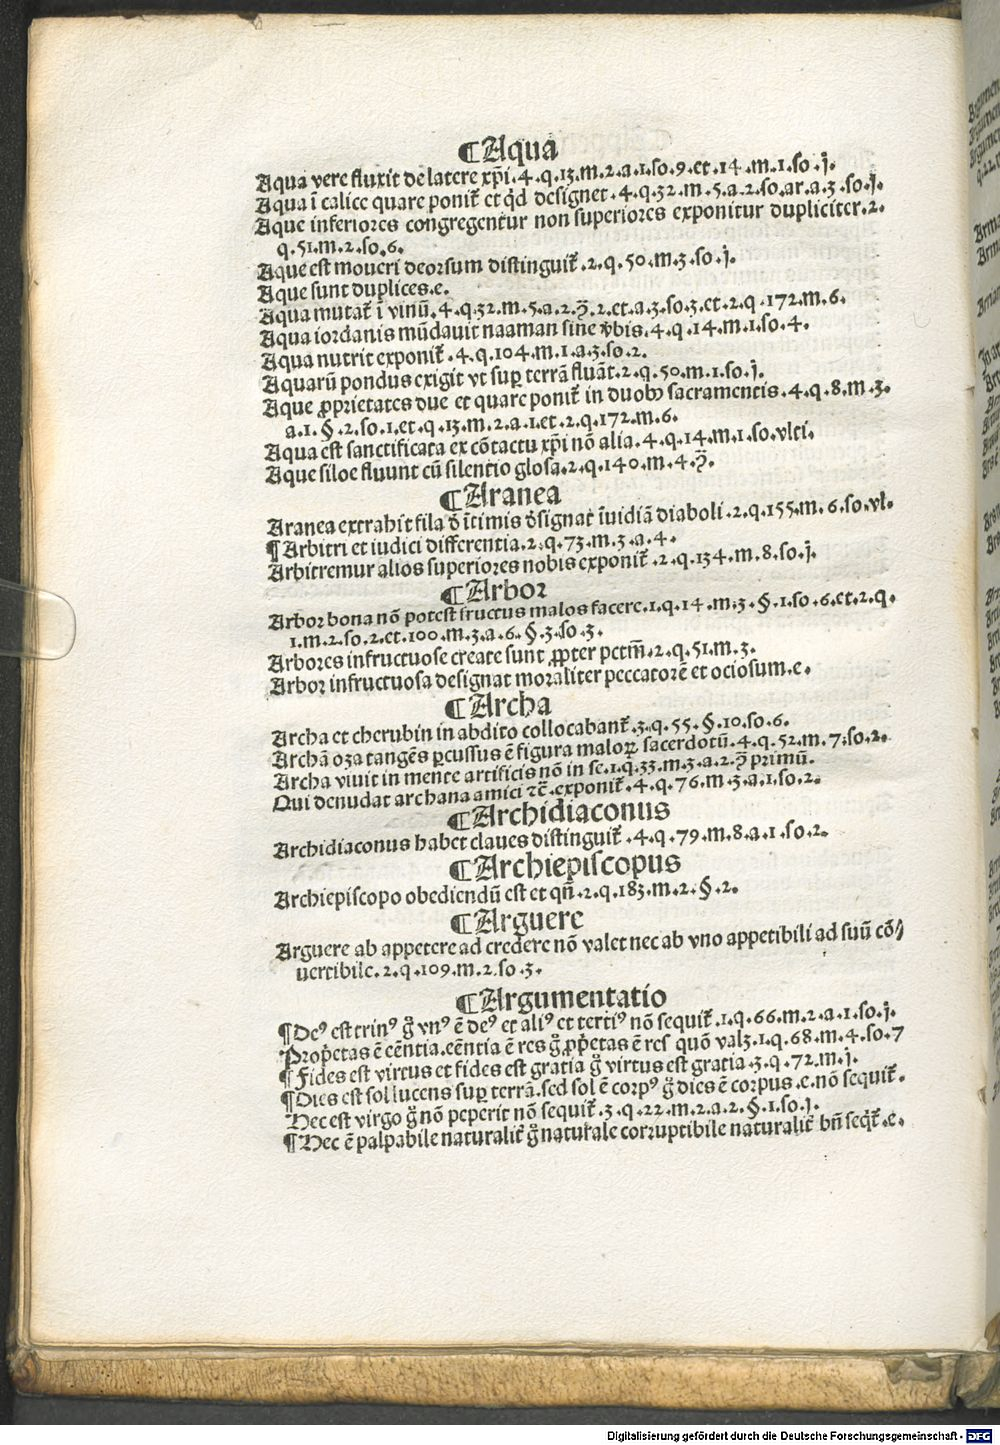 ¶Aqua
Aqua vere fluxit de latere xp̄i.4.q.13.m.2.a.1.so.9.et.14.m.1.so.j.
Aqua ī calice quare ponit᷑ et qd̓ designet.4.q.32.m.5.a.2.so.ar.a.3.so.j.
Aque inferiores congregentur non superiores exponitur dupliciter.2.
q.51.m.2.so.6.
Aque est moueri deorsum distinguit᷑.2.q.50.m.3.so.j.
Aque sunt duplices.e.
Aqua mutat᷑ ī vinū.4.q.32.m.5.a.2.ꝯ̄.2.et.a.3.so.3.et.2.q.172.m.6.
Aqua iordanis mūdauit naaman sine v̓bis.4.q.14.m.1.so.4.
Aqua nutrit exponit᷑.4.q.104.m.1.a.3.so.2.
Aquarū pondus exigit vt suꝑ terrā fluāt.2.q.50.m.1.so.j.
Aque ꝓprietates due et quare ponit᷑ in duobꝰ sacramentis.4.q.8.m.3.
a.1.§.2.so.1.et.q.13.m.2.a.1.et.2.q.172.m.6.
Aqua est sanctificata ex cōtactu xp̄i nō alia.4.q.14.m.1.so.vlti.
Aque siloe fluunt cū silentio glosa.2.q.140.m.4.ꝯ̄.
¶Aranea
Aranea extrahit fila d̓ ītimis d̓signat īuidiā diaboli.2.q.155.m.6.so.vl.
¶Arbitri et iudici differentia.2.q.73.m.3.a.4.
Arbitremur alios superiores nobis exponit᷑.2.q.134.m.8.so.j.
¶Arbor
Arbor bona nō potest fructus malos facere.1.q.14.m.3.§.1.so.6.et.2.q.
1.m.2.so.2.et.100.m.3.a.6.§.3.so.3.
Arbores infructuose create sunt ꝓpter pctm̄.2.q.51.m.3.
Arbor infructuosa designat moraliter peccatorē et ociosum.e.
¶Archa
Archa et cherubin in abdito collocabant᷑.3.q.55.§.10.so.6.
Archā oza tangēs ꝑcussus ē figura maloꝝ sacerdotū.4.q.52.m.7.so.2.
Archa viuit in mente artificis nō in se.1.q.33.m.3.a.2.ꝯ̄ primū.
Qui denudat archana amici ⁊c̄.exponit᷑.4.q.76.m.3.a.1.so.2.
¶Archidiaconus
Archidiaconus habet claues distinguit᷑.4.q.79.m.8.a.1.so.2.
¶Archiepiscopus
Archiepiscopo obediendū est et qn̄.2.q.183.m.2.§.2.
¶Arguere
Arguere ab appetere ad credere nō valet nec ab vno appetibili ad suū cō⸗
uertibile.2.q.109.m.2.so.3.
¶Argumentatio
¶Deꝰ est trinꝰ g̊ vnꝰ ē deꝰ et aliꝰ et tertiꝰ nō sequit᷑.1.q.66.m.2.a.1.so.j.
Prop̓etas ē eēntia.eēntia ē res g̊ ꝓp̓etas ē res quō valꝫ.1.q.68.m.4.so.7
¶Fides est virtus et fides est gratia g̊ virtus est gratia.3.q.72.m.j.
¶Dies est sol lucens suꝑ terrā.sed sol ē corpꝰ g̊ dies ē corpus.e.nō sequit᷑.
Hec est virgo g̊ nō peperit nō sequit᷑.3.q.22.m.2.a.2.§.1.so.j.
¶Hec ē palpabile naturalit᷑ g̊ naturale corruptibile naturalit᷑ bn̄ seqt᷑.e.
Digitalisierung gefördert durch die Deutsche Forschungsgemeinschaft - DFG